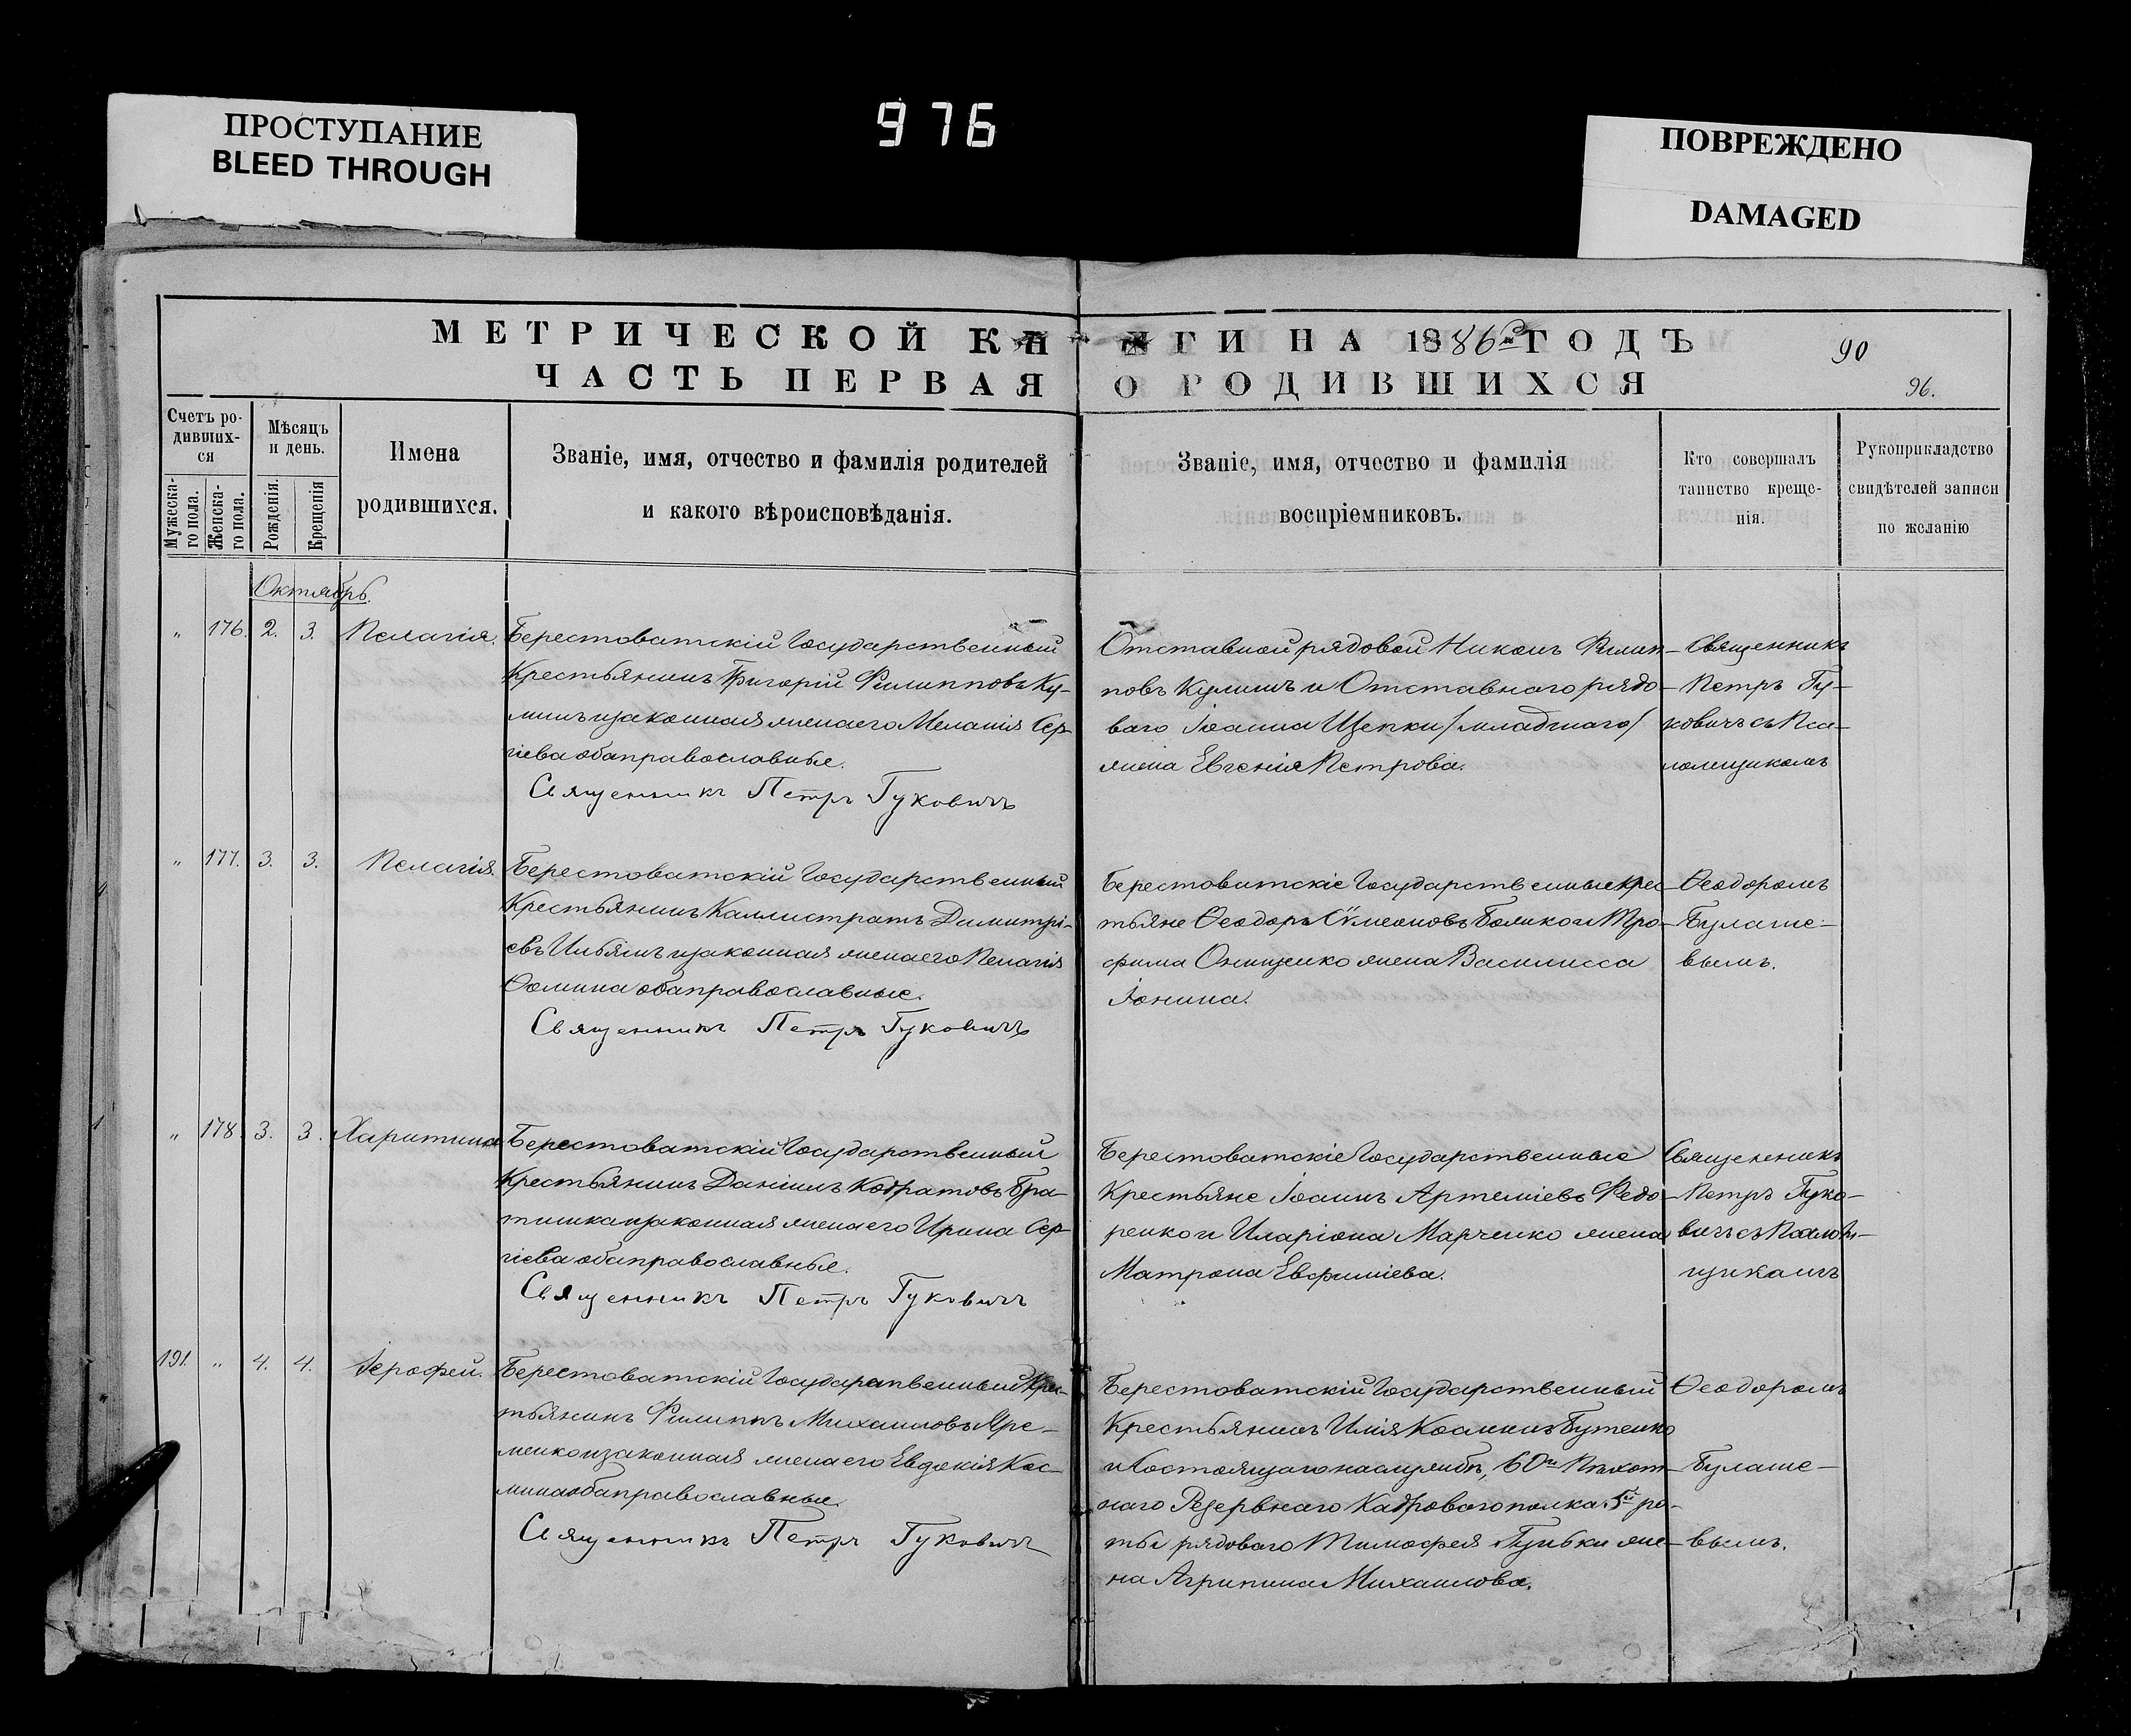 ПРОСТУПАНИЕ
BLEED THROUGH
976
ПОВРЕЖДЕНО
DAMAGED
МЕТРИЧЕСКОЙ КНИГИ НА 1886й ГОДЪ
90
ЧАСТЬ ПЕРВАЯ О РОДИВШИХСЯ
96.
Счетъ ро-
дивших-
ся
Мужеска-
го пола.
Женска-
го пола.
Мѣсяцъ
и день.
Рожденія.
Крещенія
Имена
родившихся.
Званіе, имя, отчество и фамилія родителей
и какого вѣроисповѣданія.
Званіе, имя, отчество и фамилія
воспріемниковъ.
Кто совершалъ
таинство креще-
нія.
Рукоприкладство
свидѣтелей записи
по желанію
Октябрь.
" 176. 2. 3. Пелагія.
Берестоватскій Государственный
Крестьянинъ Григорій Филипповъ Ку-
лишъ и законная жена его Меланія Сер-
гіева оба православные.
Священникъ Петръ Гуковичъ
Отставной рядовой Никонъ Филип-
повъ Кулишъ и Отставнаго рядо-
ваго Іоанна Щепки /младшаго/
жена Евгенія Петрова.
Священникъ
Петръ Гу-
ковичъ съ Пса-
ломщикомъ
" 177. 3. 3. Пелагія.
Берестоватскій Государственный
Крестьянинъ Каллистратъ Димитрі-
евъ Ильяшъ и законная жена его Пелагія
Ѳомина оба православные.
Священникъ Петръ Гуковичъ
Берестоватскіе Государственные Крес-
тьяне Ѳеодоръ Сѵмеоновъ Бойко и Тро-
фима Онищенко жена Василисса
Іонина.
Ѳеодоромъ
Булаше-
вымъ.
" 178. 3. 3. Харитина
Берестоватскій Государственный
Крестьянинъ Даніилъ Кодратовъ Бра-
тишка и законная жена его Ирина Сер-
гіева оба православные.
Священникъ Петръ Гуковичъ
Берестоватскіе Государственные
Крестьяне Іоаннъ Артеміевъ Федо-
ренко и Иларіона Марченко жена
Матрона Евфиміева.
Священникъ
Петръ Гуко-
вичъ съ Псалом-
щикомъ
191. " 4. 4. Іерофей.
Берестоватскій Государственный Крес-
тьянинъ Филиппъ Михаиловъ Яре-
менко и законная жена его Евдокія Кос-
мина оба православные.
Священникъ Петръ Гуковичъ
Берестоватскій Государственный
Крестьянинъ Илія Косминъ Бутенко
и Состоящаго на службѣ, 60го Пѣхот-
наго Резервнаго Кадроваго полка 5й ро-
ты рядоваго Тимофея Губки же-
на Агрипина Михаилова.
Ѳеодоромъ
Булаше-
вымъ.